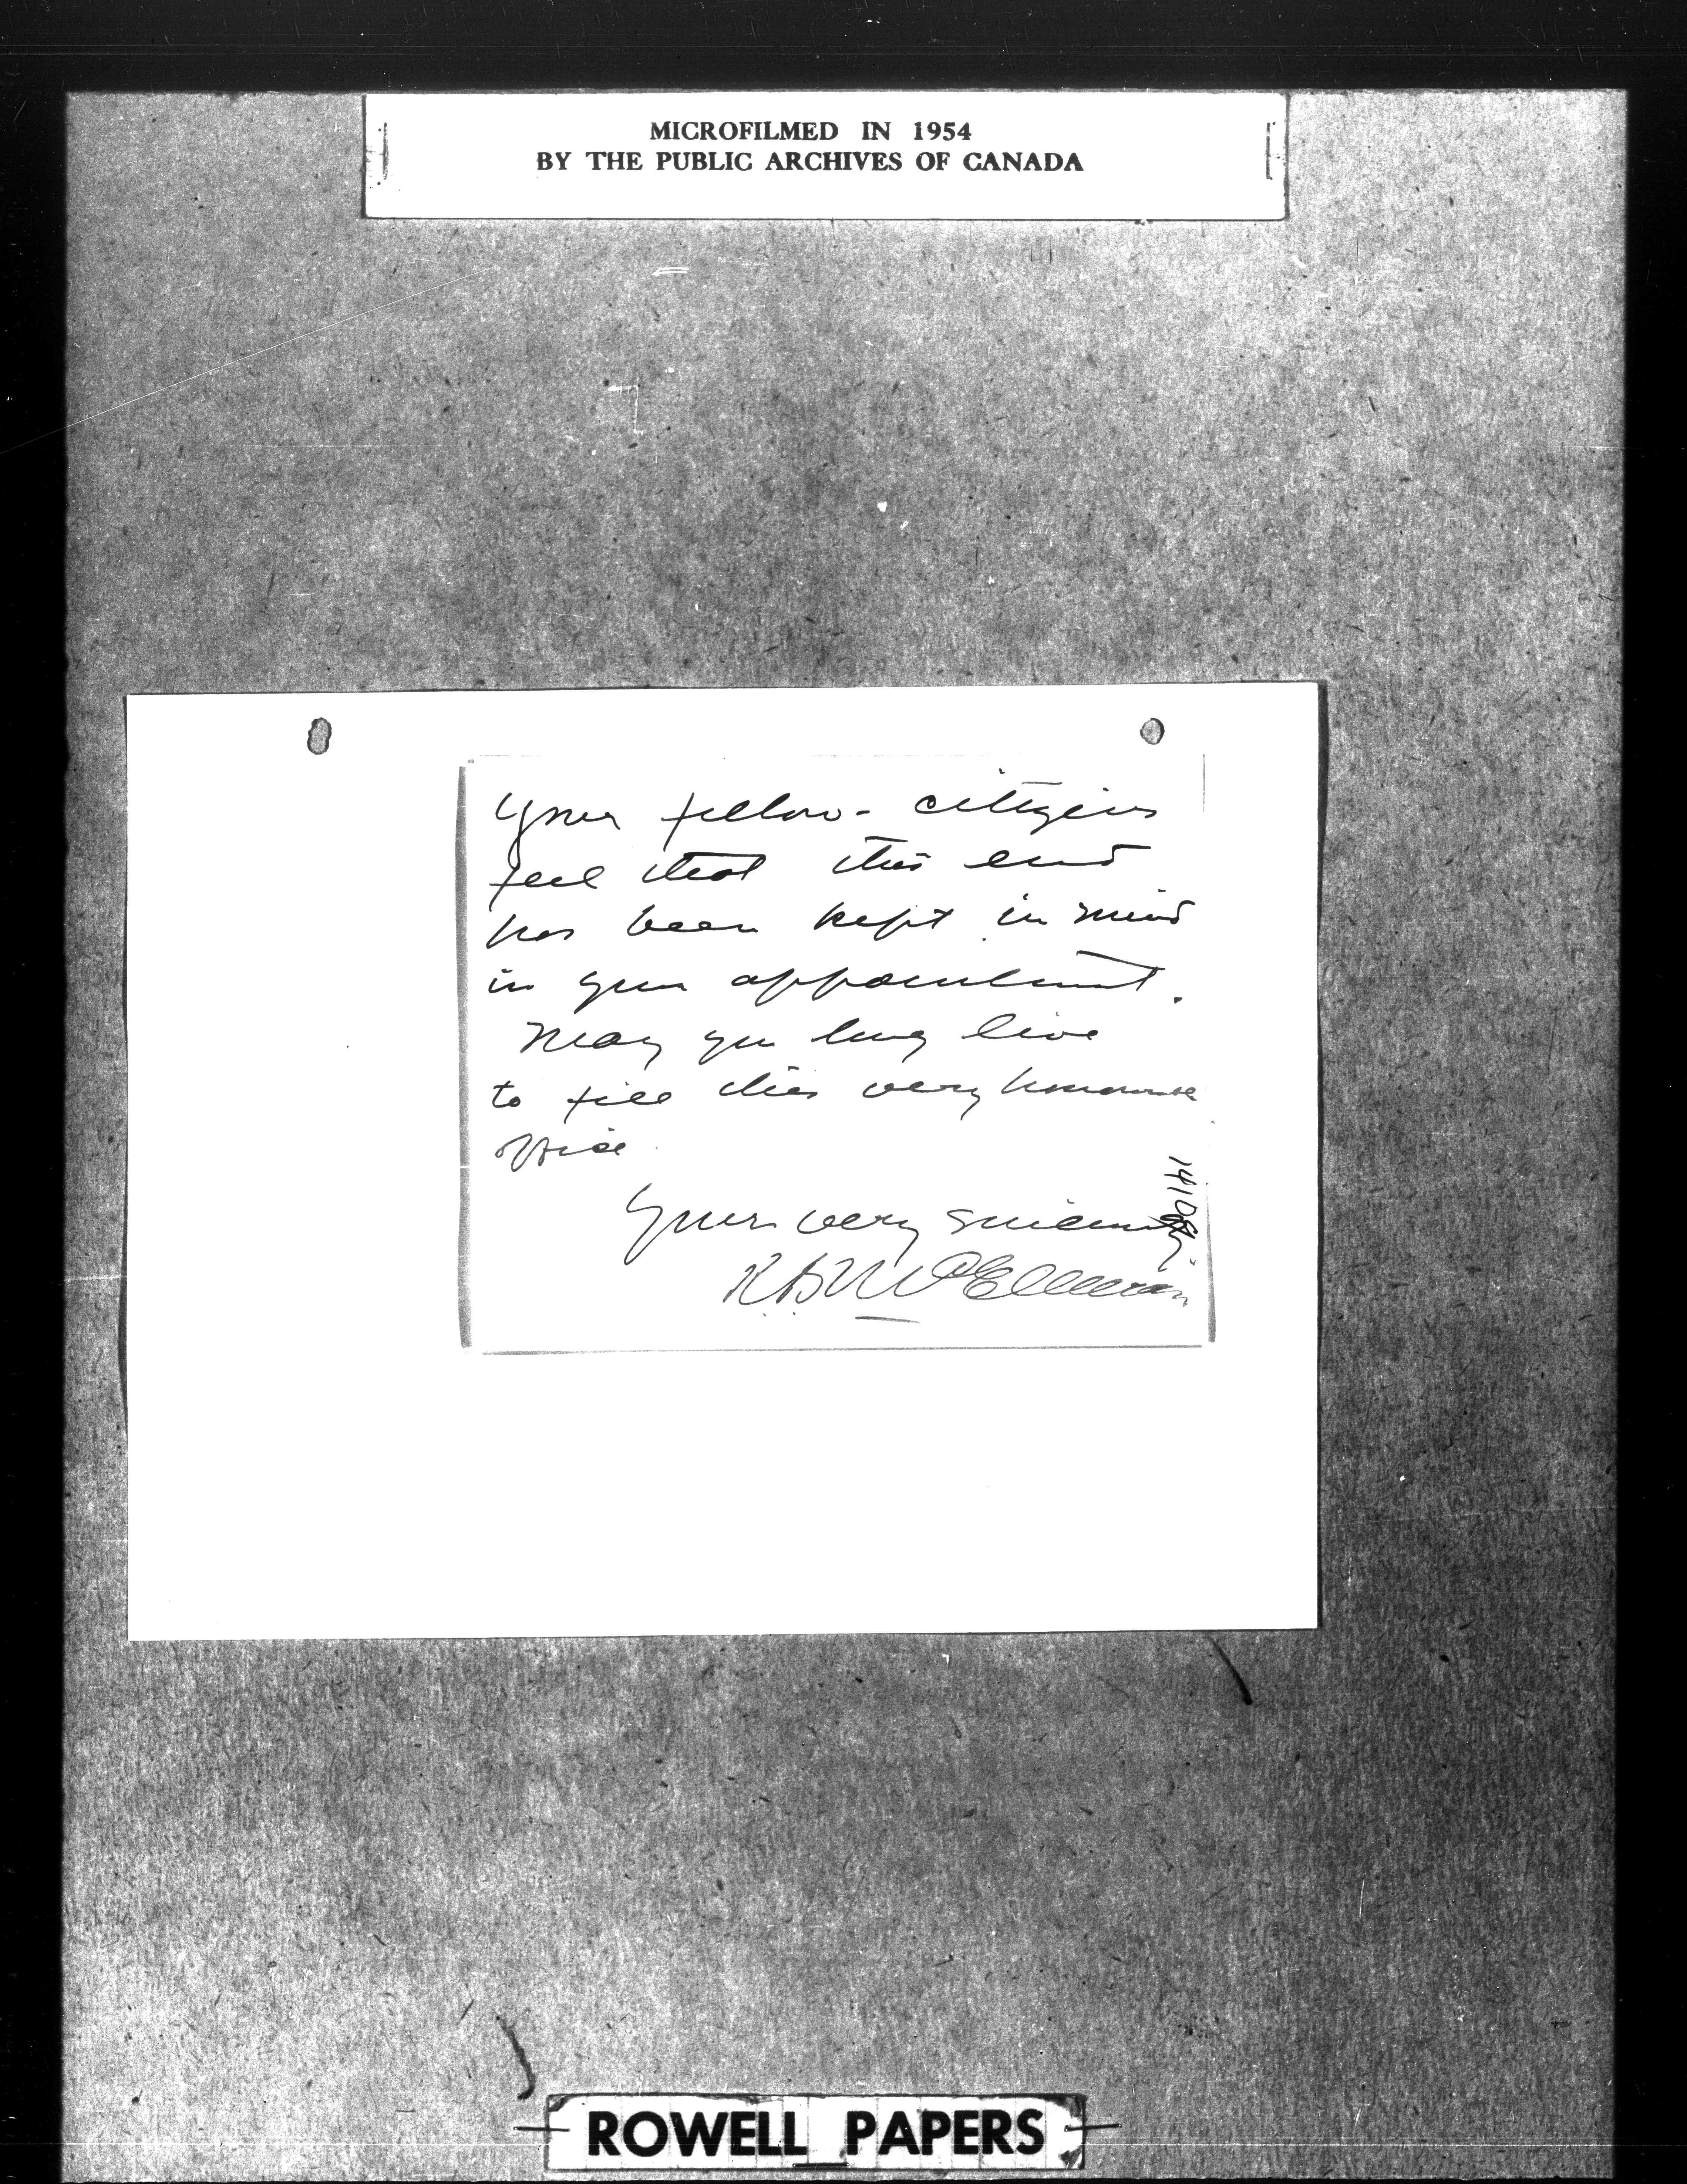 MICROFILMED IN 1954
BY THE PUBLIC ARCHIVES OF CANADA
Your fellow-citizens
feel that this end
has been kept in mind
in your appointment.
May you long live
to fill this very honourable
office.
Yours very sincerely
McElheran
ROWELL PAPERS